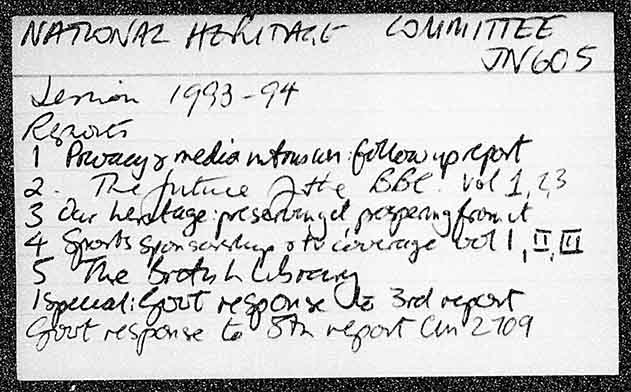 NATIONAL HERITAGE COMMITTEE
JN605
Session 1993-94
Reports
1 Privacy & media intrusion: follow up report
2. The future of the BBC. vol 1, 2, 3
3 Our heritage: preserving it, prospering from it
4 Sports sponsorship & tv coverage vol I, II, III
5 The British Library
1 special: Govt response to 3rd report
Govt response to 5th report Cm 2709